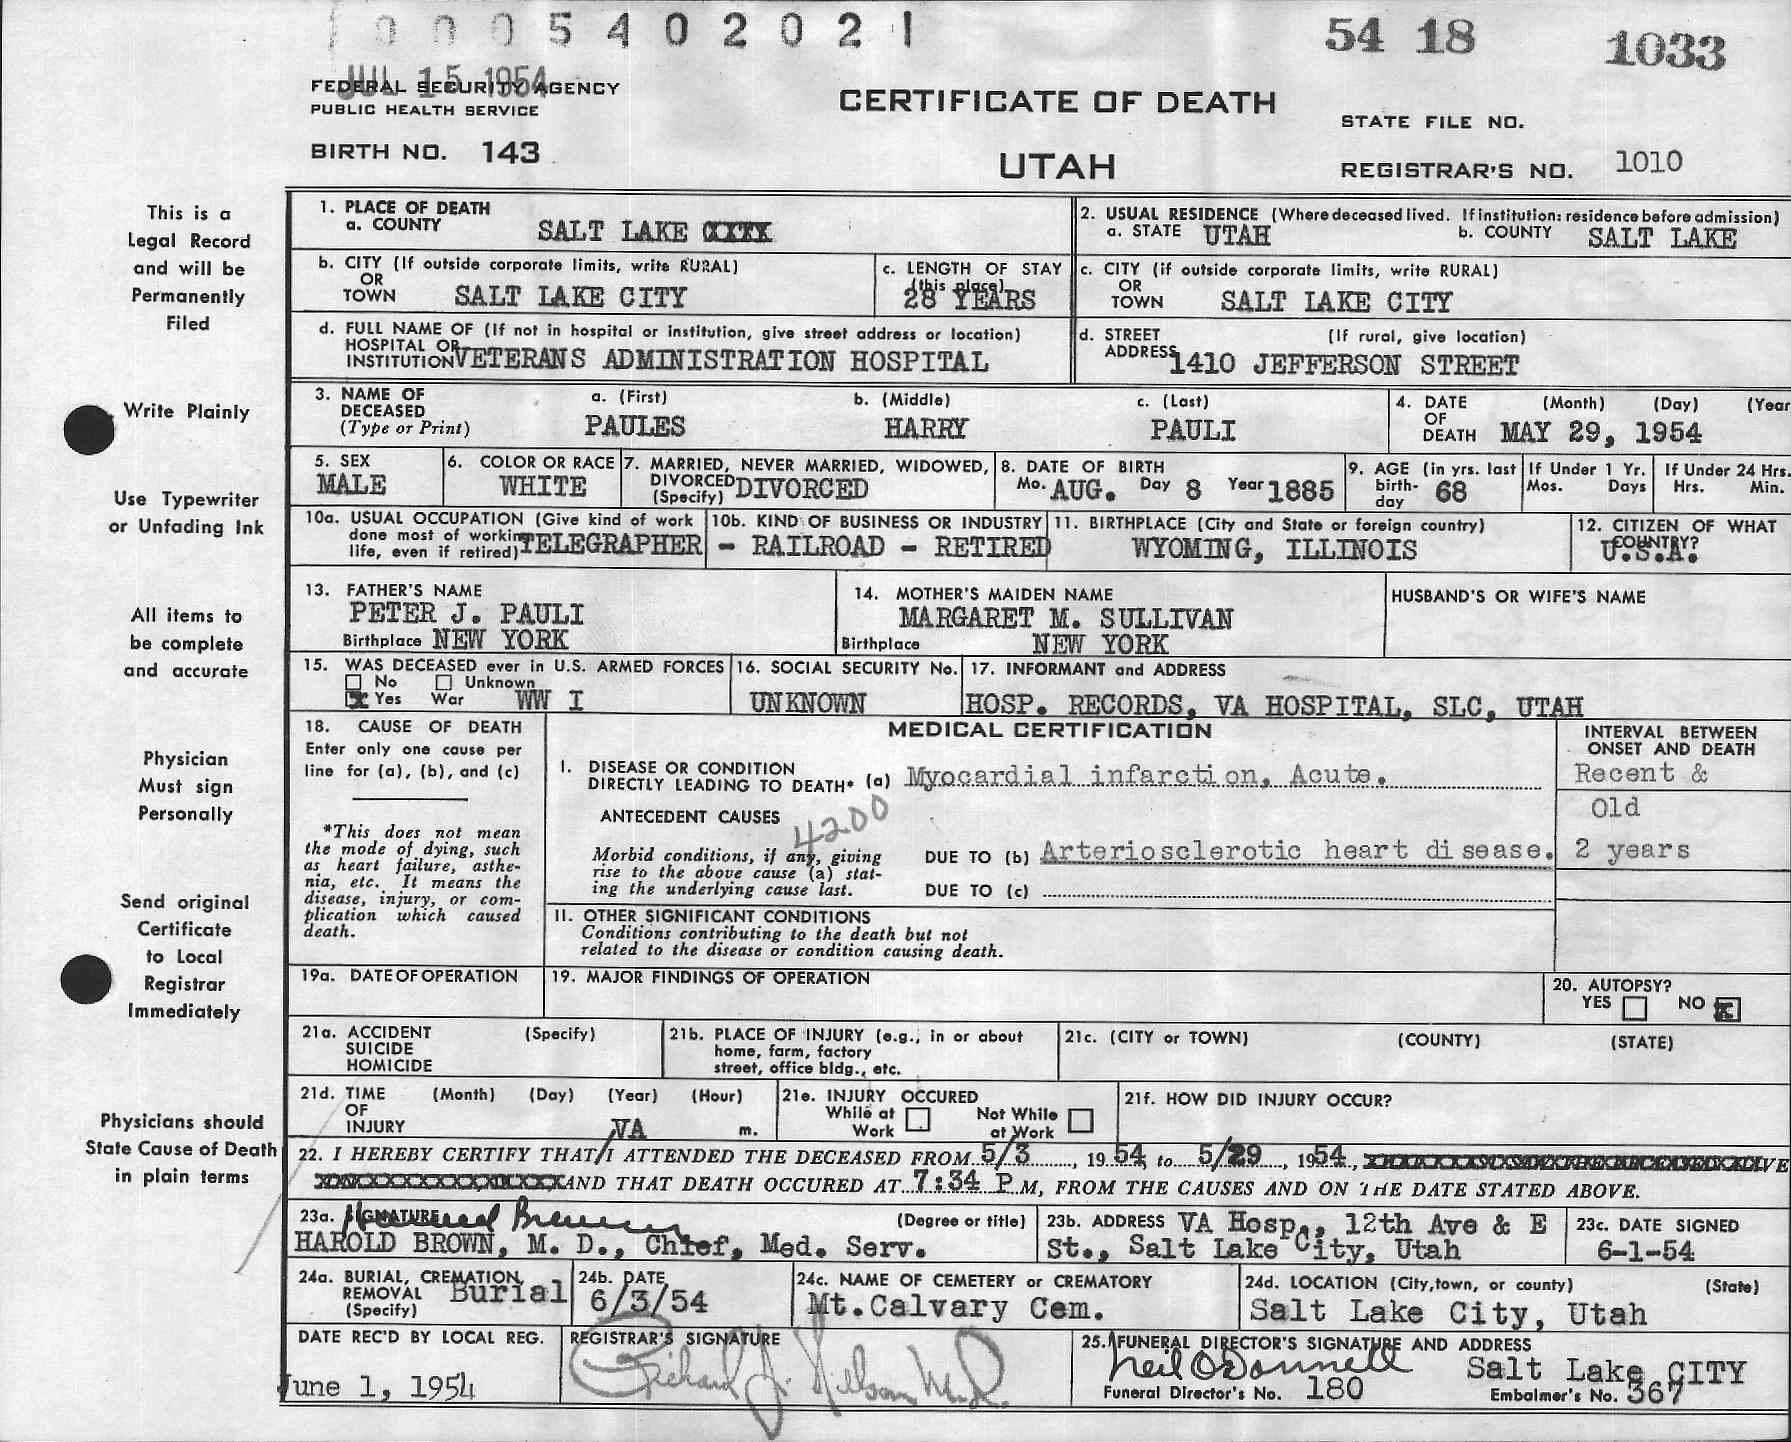 0 0 0 5 4 0 2 0 2 1
54 18 1033
JUL 15 1954
FEDERAL SECURITY AGENCY
PUBLIC HEALTH SERVICE
CERTIFICATE OF DEATH
STATE FILE NO.
BIRTH NO. 143
UTAH
REGISTRAR'S NO. 1010
This is a
Legal Record
and will be
Permanently
Filed
Write Plainly
Use Typewriter
or Unfading Ink
All items to
be complete
and accurate
Physician
Must sign
Personally
Send original
Certificate
to Local
Registrar
Immediately
Physicians should
State Cause of Death
in plain terms
1. PLACE OF DEATH
a. COUNTY SALT LAKE
2. USUAL RESIDENCE (Where deceased lived. If institution: residence before admission)
a. STATE UTAH b. COUNTY SALT LAKE
b. CITY (If outside corporate limits, write RURAL)
OR
TOWN SALT LAKE CITY
c. LENGTH OF STAY
(this place)
28 YEARS
c. CITY (if outside corporate limits, write RURAL)
OR
TOWN SALT LAKE CITY
d. FULL NAME OF (If not in hospital or institution, give street address or location)
HOSPITAL OR
INSTITUTION VETERANS ADMINISTRATION HOSPITAL
d. STREET (If rural, give location)
ADDRESS 1410 JEFFERSON STREET
3. NAME OF
DECEASED
(Type or Print)
a. (First) b. (Middle) c. (Last)
PAULES HARRY PAULI
4. DATE (Month) (Day) (Year
OF
DEATH MAY 29, 1954
5. SEX
MALE
6. COLOR OR RACE
WHITE
7. MARRIED, NEVER MARRIED, WIDOWED,
DIVORCED
(Specify) DIVORCED
8. DATE OF BIRTH
Mo. AUG. Day 8 Year 1885
9. AGE (in yrs. last
birth-
day 68
If Under 1 Yr.
Mos. Days
If Under 24 Hrs.
Hrs. Min.
10a. USUAL OCCUPATION (Give kind of work
done most of working
life, even if retired) TELEGRAPHER
10b. KIND OF BUSINESS OR INDUSTRY
- RAILROAD - RETIRED
11. BIRTHPLACE (City and State or foreign country)
WYOMING, ILLINOIS
12. CITIZEN OF WHAT
COUNTRY?
U.S.A.
13. FATHER'S NAME
PETER J. PAULI
Birthplace NEW YORK
14. MOTHER'S MAIDEN NAME
MARGARET M. SULLIVAN
Birthplace NEW YORK
HUSBAND'S OR WIFE'S NAME
15. WAS DECEASED ever in U.S. ARMED FORCES
No Unknown
x Yes War WW I
16. SOCIAL SECURITY No.
UNKNOWN
17. INFORMANT and ADDRESS
HOSP. RECORDS, VA HOSPITAL, SLC, UTAH
18. CAUSE OF DEATH
Enter only one cause per
line for (a), (b), and (c)
*This does not mean
the mode of dying, such
as heart failure, asthe-
nia, etc. It means the
disease, injury, or com-
plication which caused
death.
MEDICAL CERTIFICATION
INTERVAL BETWEEN
ONSET AND DEATH
I. DISEASE OR CONDITION
DIRECTLY LEADING TO DEATH* (a) Myocardial infarction, Acute.
Recent &
Old
ANTECEDENT CAUSES
4200
Morbid conditions, if any, giving
rise to the above cause (a) stat-
ing the underlying cause last.
DUE TO (b) Arteriosclerotic heart disease. 2 years
DUE TO (c)
II. OTHER SIGNIFICANT CONDITIONS
Conditions contributing to the death but not
related to the disease or condition causing death.
19a. DATE OF OPERATION
19. MAJOR FINDINGS OF OPERATION
20. AUTOPSY?
YES NO x
21a. ACCIDENT (Specify)
SUICIDE
HOMICIDE
21b. PLACE OF INJURY (e.g., in or about
home, farm, factory
street, office bldg., etc.
21c. (CITY or TOWN) (COUNTY) (STATE)
21d. TIME (Month) (Day) (Year) (Hour)
OF
INJURY m.
21e. INJURY OCCURED
While at Not While
Work at Work
21f. HOW DID INJURY OCCUR?
VA
22. I HEREBY CERTIFY THAT/I ATTENDED THE DECEASED FROM 5/3, 1954, to 5/29, 1954,
AND THAT DEATH OCCURED AT 7:34 P M, FROM THE CAUSES AND ON THE DATE STATED ABOVE.
23a. SIGNATURE (Degree or title)
Harold Brown
HAROLD BROWN, M. D., Chief, Med. Serv.
23b. ADDRESS VA Hosp., 12th Ave & E
St., Salt Lake City, Utah
23c. DATE SIGNED
6-1-54
24a. BURIAL, CREMATION,
REMOVAL Burial
(Specify)
24b. DATE
6/3/54
24c. NAME OF CEMETERY or CREMATORY
Mt.Calvary Cem.
24d. LOCATION (City,town, or county) (State)
Salt Lake City, Utah
DATE REC'D BY LOCAL REG.
June 1, 1954
REGISTRAR'S SIGNATURE
Richard J. Nelson M.D.
25. FUNERAL DIRECTOR'S SIGNATURE AND ADDRESS
Neil O'Donnell Salt Lake CITY
Funeral Director's No. 180 Embalmer's No. 367